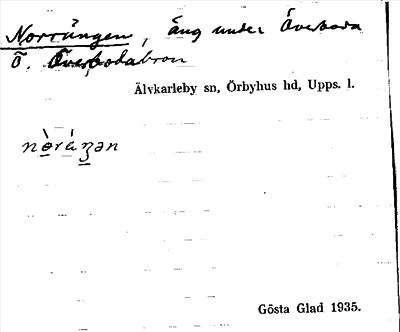 Norrängen, äng under Överboda
Ö. Överbodabron
Älvkarleby sn, Örbyhus hd, Upps. l.
Gösta Glad 1935.